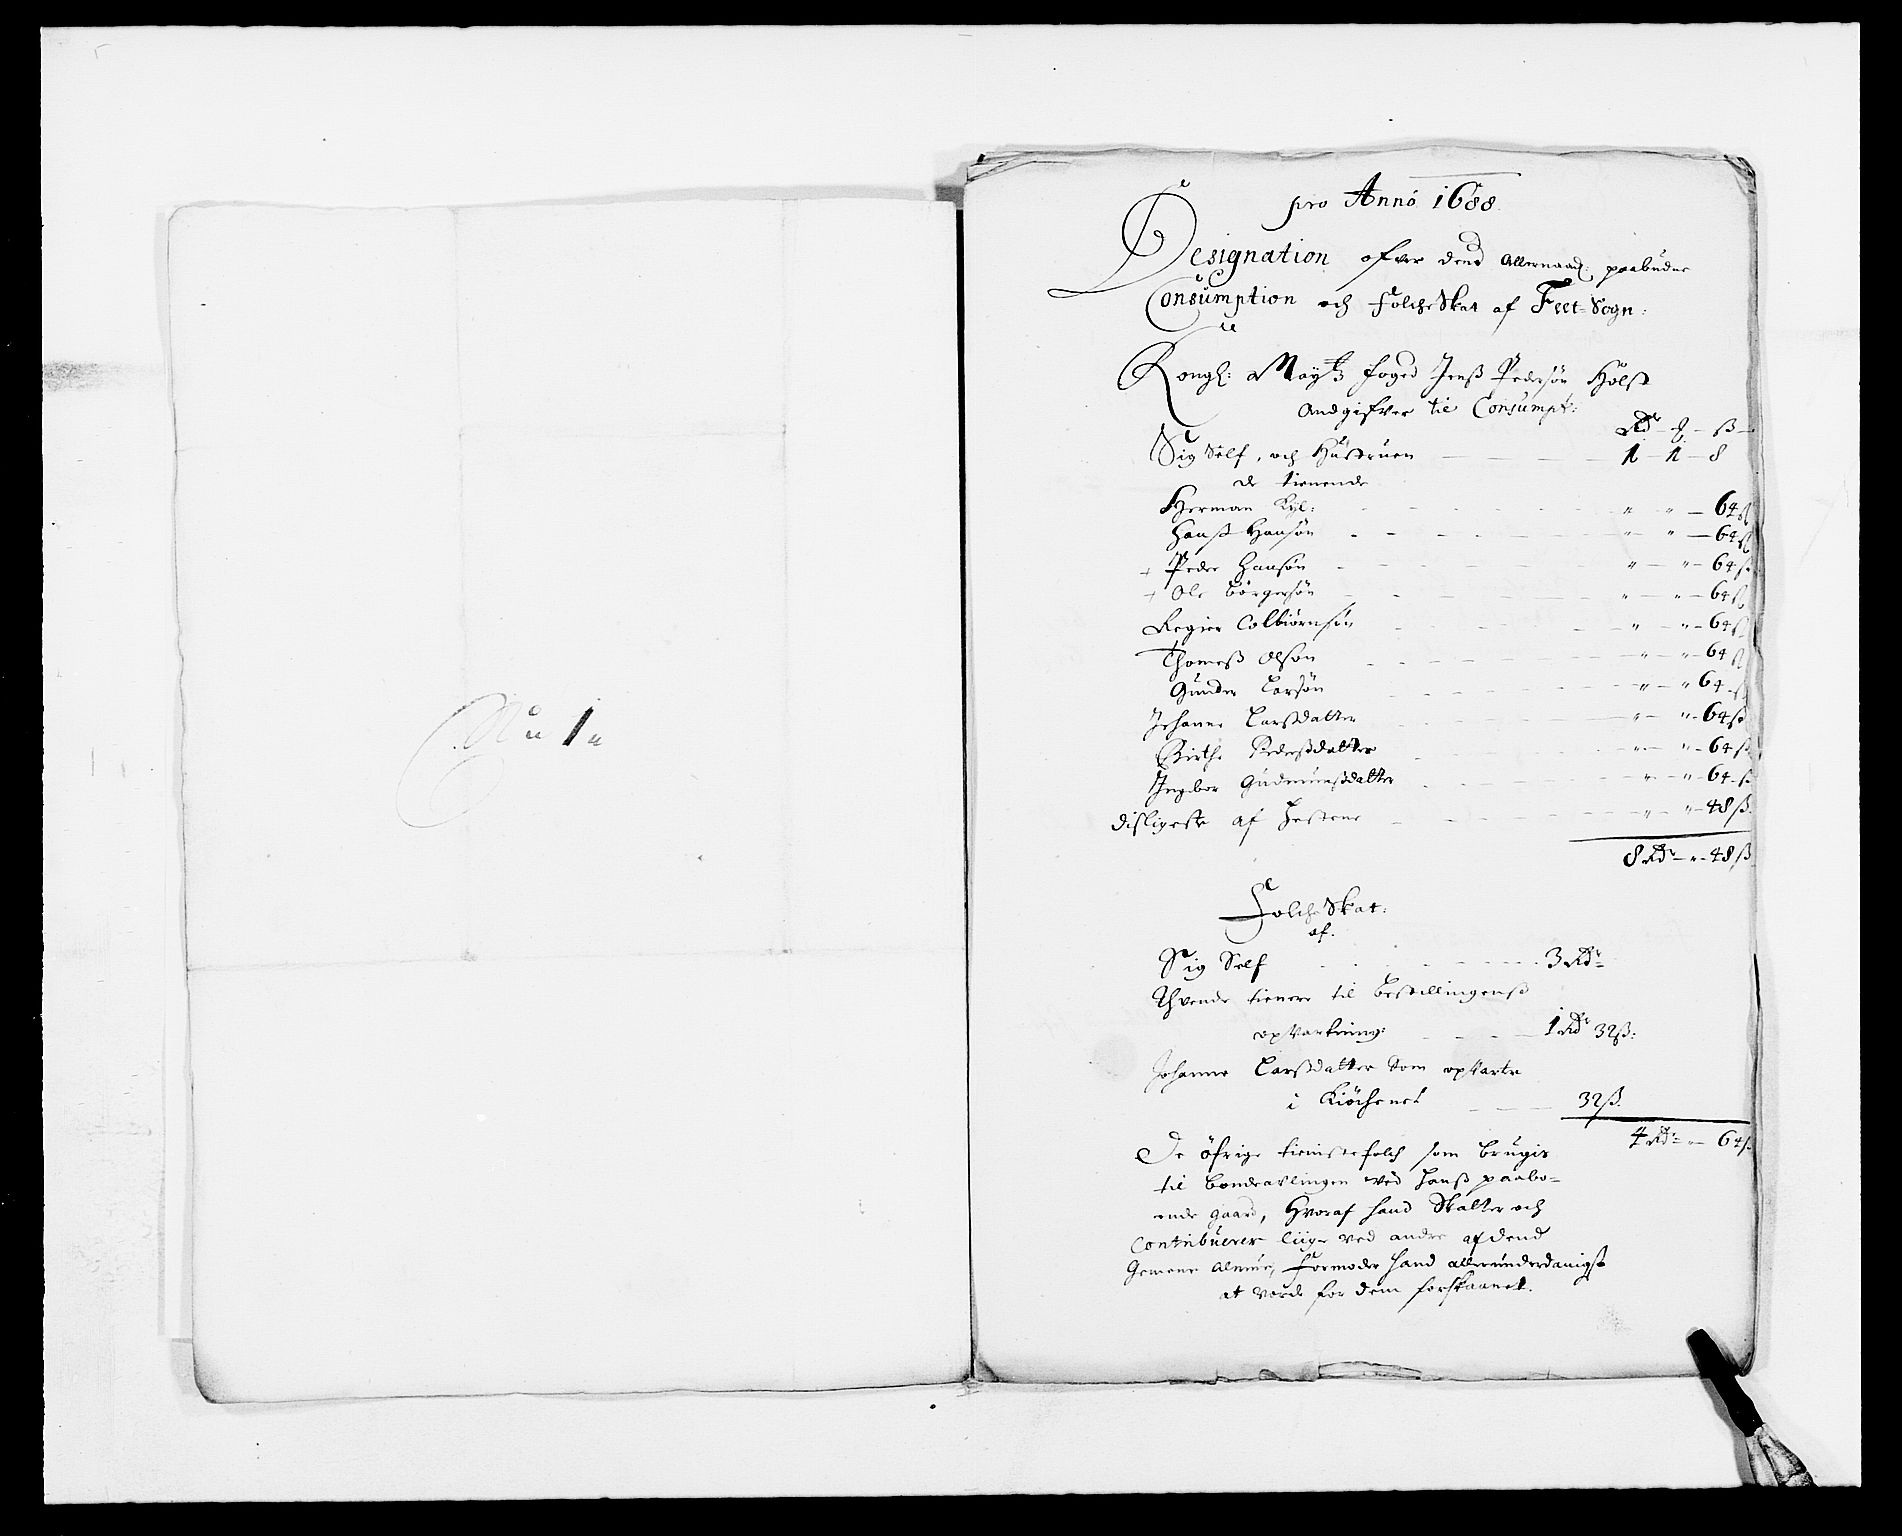 No 1
pro Anno 1688
Designation ofver dend Allernaad: paabudne
Consumption och FolcheSkat af Feet-Sogn:
Kongl: Mayttz foged Jenß Pedersøn Holst
Andgifver til Consumpt:
Rdr – ß –
Sig Self, och Hustruen – – – 1 – 1 – 8
de tienende
Herman Kyl: – – – " " – 64 ß
Hanß Hansøn – – – " " – 64 ß
+ Peder Hansøn – – – " – " – 64 ß
+ Ole Børgersøn – – – " – " – 64 ß
Regier Colbiørnsøn – – – " – " – 64 ß
Thomeß Olsøn – – – " – " – 64 ß
Gunder Larsøn – – – " – " 64 ß
Johanne Larsdatter – – – " – " – 64 ß
Birthe Pedersdatter – – – " – " – 64 ß
Ingbor Gudmunßdatter – – – " – " – 64 ß
disligeste af Hestene – – – " – " – 48 ß
8 Rdr – " – 48 ß
FolcheSkat:
af.
Sig Self – – – 3 Rdr
Thvende tienere til bestillingenß
opVartning: – – – 1 Rdr 32 ß:
Johanne Larsdatter Som opVarte
i Kiøchenet – – – 32 ß.
4 Rdr – " – 64 ß
De øfrige tienistefolch som brugis
til bondeavlingen ved hanß paabo-
ende gaard, Hvoraf hand Skatter och
Contribuerer liige ved andre af dend
Gemene Almue, formoder hand allerunderdanigst
at vorde for dem forskaanet.